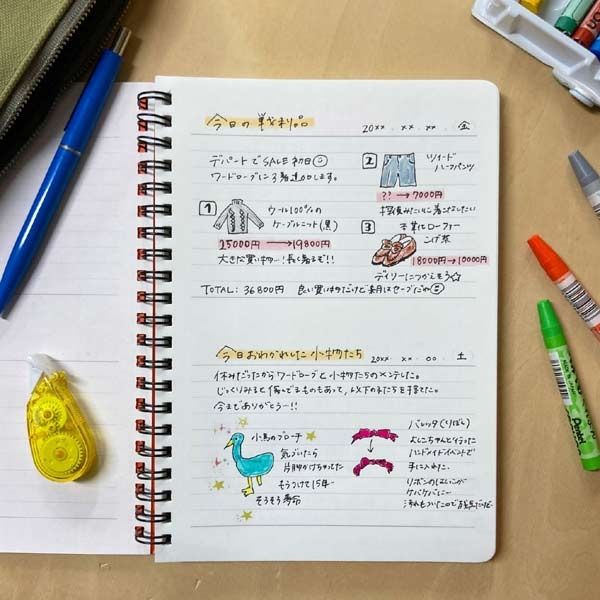 今日の戦利品
20××.××.××. 金
デパートでSALE初日
ワードローブに3着追加します。
1
ウール100%の
ケーブルニット(黒)
25000円→19800円
大きな買い物…!長く着るぞ!!
2
ツイード
ハーフパンツ
??→7000円
探偵みたいに着こなしたい
3
本革ローファー
こげ茶
18000円→10000円
デイリーにつかえそう☆
TOTAL: 36800円 良い買い物だけど来月はセーブだねⓘ
今日おわかれした小物たち
20××.××.○○. 土
休みだったからワードローブと小物たちのメンテした。
じっくりみると傷んでるものもあって、以下の子たちを手放した。
今までありがとうー!!
小鳥のブローチ
気づいたら
片脚かけちゃってた
もうつけて15年…
そろそろ寿命
バレッタ(りぼん)
よしこちゃんと行った
ハンドメイドイベントで
手に入れた。
リボンのはしっこが
ケバケバにー
Pentel